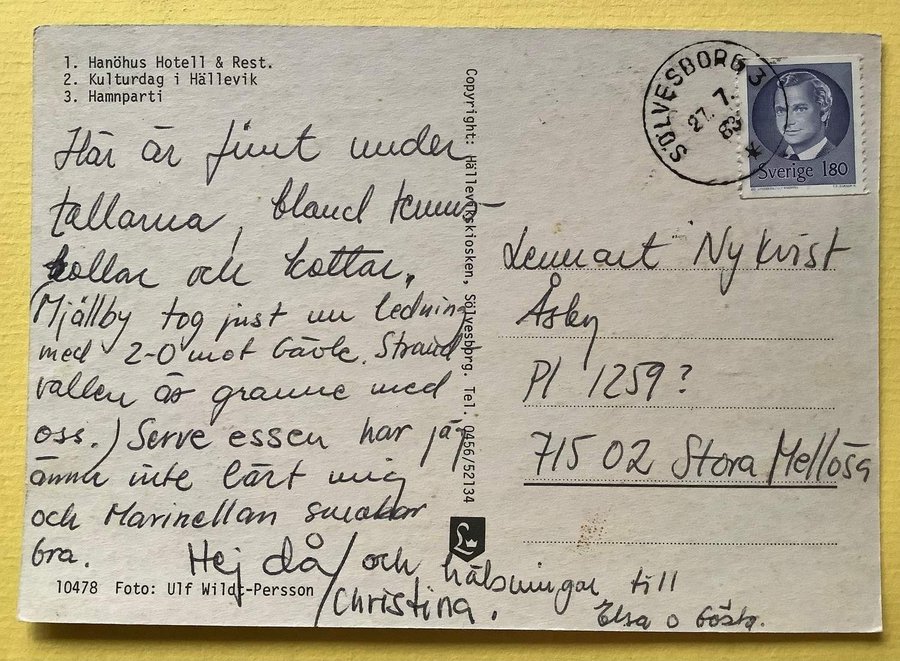 1. Hanöhus Hotell & Rest.
2. Kulturdag i Hällevik
3. Hamnparti
Här är fint under
tallarna, bland tennis-
bollar och kottar.
(Mjällby tog just nu ledning
med 2-0 mot Gävle. Strand-
vallen är granne med
oss.) Serve essen har jag
ännu inte lärt mig
och Marinellan smakar
bra.
Hej då/och hälsningar till
Elsa o Gösta.
/Christina.
10478 Foto: Ulf Wildt-Persson
Copyright: Hällevikskiosken, Sölvesborg. Tel. 0456/52134
SÖLVESBORG 3
27. 7. 83
Sverige 180
Lennart Nykvist
Åsby
Pl 1259?
715 02 Stora Mellösa